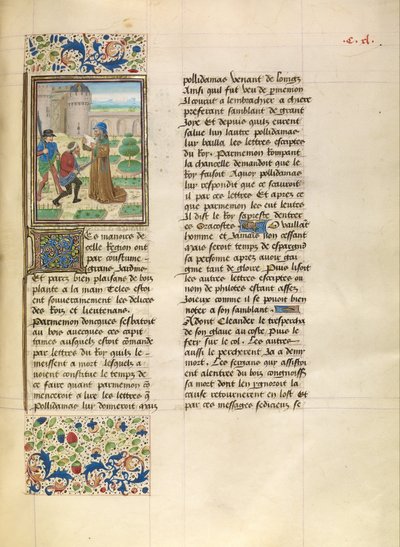 .c. xl.
Les manoirs de
celle Region ont
par coustume
grans Jardins
Et parcz bien plaisans de bois
plante a la main / Telz estoi
ent souveramement les delices
des Rois et lieutenans.
Parmenon doncques sesbatoit
au bois avecques ces capi
taines ausquelz estoit comande
par lettres du Roy quilz le
meissent a mort lesquelz a
voient constitue le temps de
ce faire quant parmenon com
menceroit a lire les lettres que
Polidamas luy donneroit / Mais
pollidamas venant de loingz
Ainsi quil fut veu de parmenon
Il courut a lembracher a chiere
preferant samblant de grant
Joye Et depuis quilz eurent
salue lun lautre pollidamas
luy bailla les lettres escriptes
du Roy. Parmenon Rompant
la chancelle demandoit que le
Roy faisoit Aquoy pollidamas
luy respondit que ce scauroit
il par ces lettres Et apres ce
que parmenon les eut leutes
Il dist le Roy sapreste dentrer
es Oracostes O vaillant
homme et Jamais non cessant
Mais seroit temps de espargnier
sa personne apres avoir gai
gnie tant de gloire Puis lisoit
les autres lettres escriptes ou
nom de philotes estant assez
Joieux comme il se pouoit bien
noter a son samblant.
Adont Cleander le trespercha
de son glaive au coste. Puis le
fery sur le col. Les autres
aussi le percherent Ja a demy
mort. Les sergans qui assistoi
ent alentree du bois congnoissans
sa mort dont ilz ygnoroient la
cause retournerent en lost Et
par ces messages sedicieux se